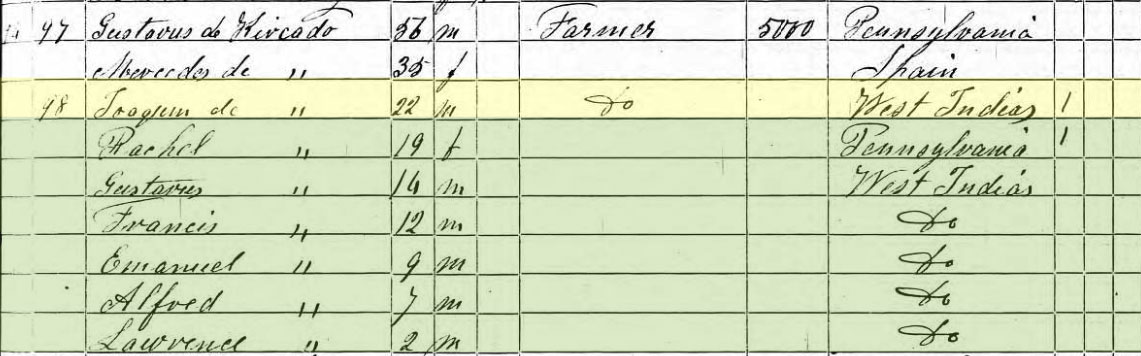 97 Gustavus de Kircado 56 m Farmer 5000 Pennsylvania
Mercedes de " 35 f Spain
98 Joaquim de " 22 m Do West Indias 1
Rachel " 19 f Pennsylvania 1
Gustavus " 14 m West Indias
Francis " 12 m Do
Emanuel " 9 m Do
Alfred " 7 m Do
Lawrence " 2 m Do